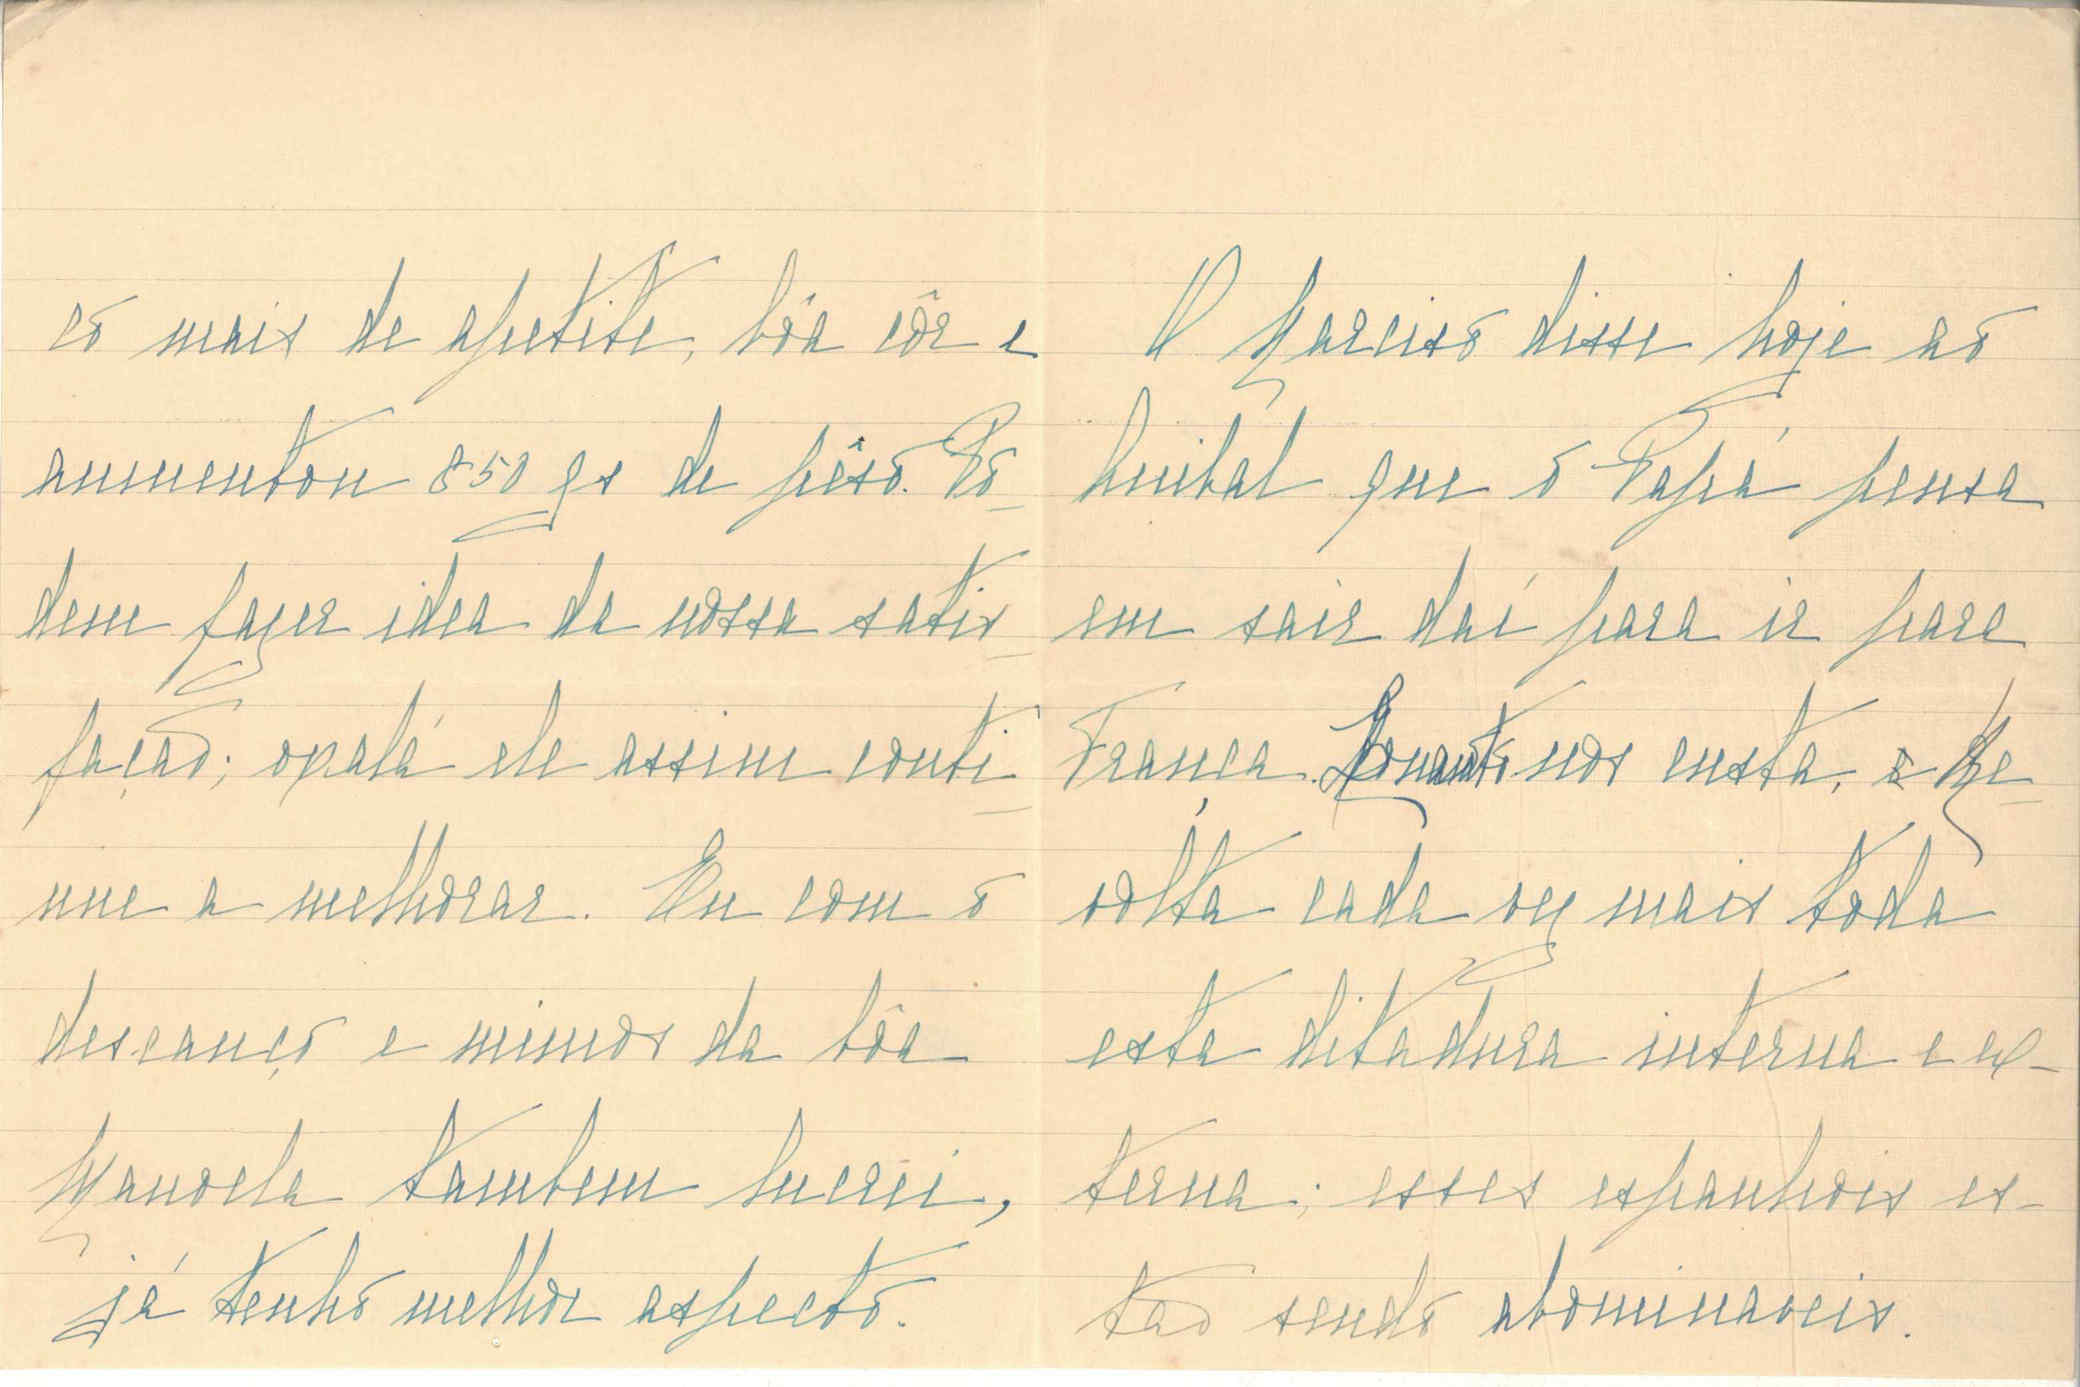 co mais de apetite, bôa côr e
aumentou 850 gs de pêso. Po-
dem fazer idea da nossa satis-
fação; oxalá ele assim conti-
nue a melhorar. Eu com o
descanço e mimos da bôa
Manoela tambem lucrei,
já tenho melhor aspecto.
O Narciso disse hoje ao
Anibal que o Papá pensa
em sair daí para ir para
França. nos custa, e Re-
volta cada vez mais toda
esta ditadura interna e ex-
terna; esses espanhois es-
tao sendo abominaveis.